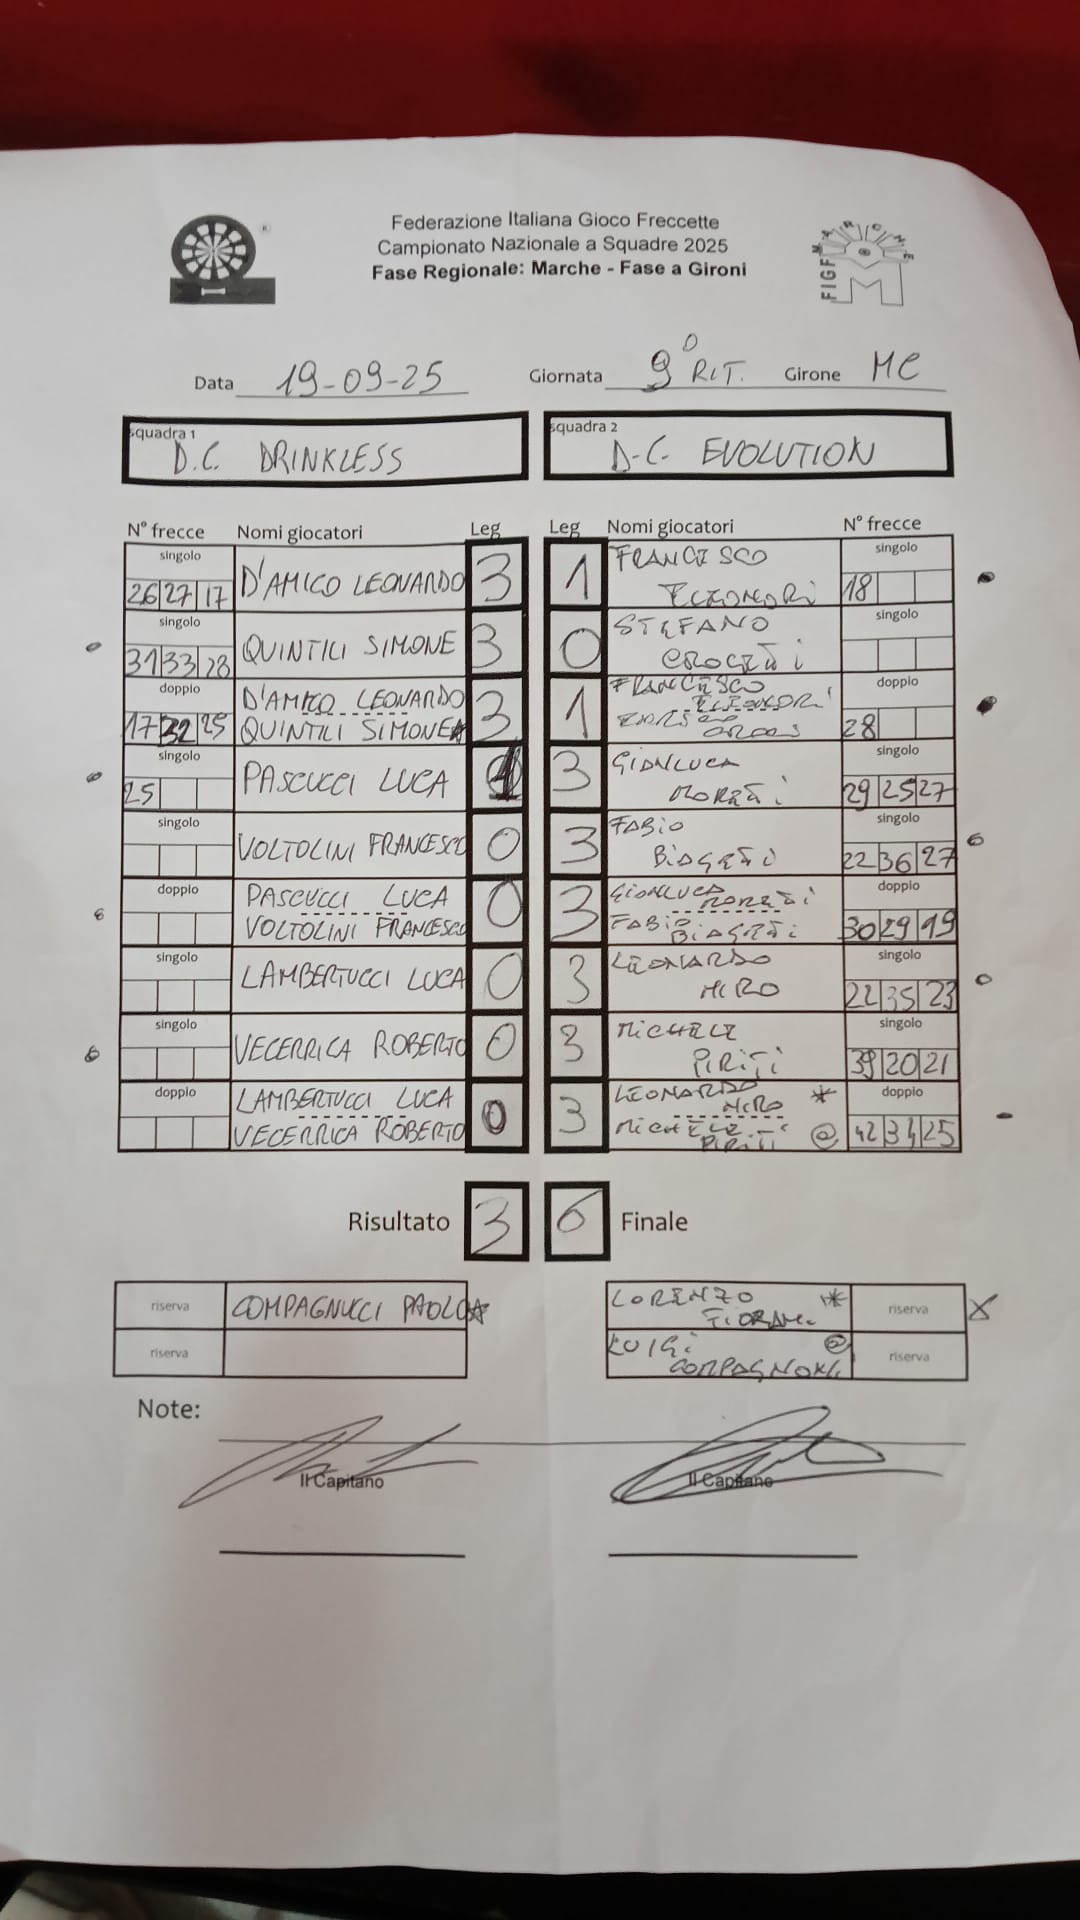 Federazione Italiana Gioco Freccette
Campionato Nazionale a Squadre 2025
Fase Regionale: Marche - Fase a Gironi
FIGF MARCHE
Data 19-09-25 Giornata 9° RIT. Girone MC
squadra 1 D.C. DRINKLESS
squadra 2 D.C. EVOLUTION
N° frecce Nomi giocatori Leg Leg Nomi giocatori N° frecce
singolo 26 27 17 D'AMICO LEONARDO 3 1 FRANCESCO singolo 18
singolo 31 33 28 QUINTILI SIMONE 3 0 STEFANO singolo
doppio 17 32 25 D'AMICO LEONARDO 3 1 FRANCESCO doppio 28
QUINTILI SIMONE
singolo 25 PASCUCCI LUCA 1 3 GIANLUCA singolo 29 25 27
singolo VOLTOLINI FRANCESCO 0 3 FABIO singolo 22 36 27
doppio PASCUCCI LUCA 0 3 GIANLUCA doppio 30 29 19
VOLTOLINI FRANCESCO FABIO
singolo LAMBERTUCCI LUCA 0 3 LEONARDO singolo 22 35 23
MIRO
singolo VECERRICA ROBERTO 0 3 MICHELE singolo 39 20 21
PIRITI
doppio LAMBERTUCCI LUCA 0 3 LEONARDO MIRO * doppio 42 34 25
VECERRICA ROBERTO MICHELE PIRITI @
Risultato 3 6 Finale
riserva COMPAGNUCCI PAOLO LORENZO * riserva X
riserva LUIGI @ riserva
Note:
Il Capitano Il Capitano